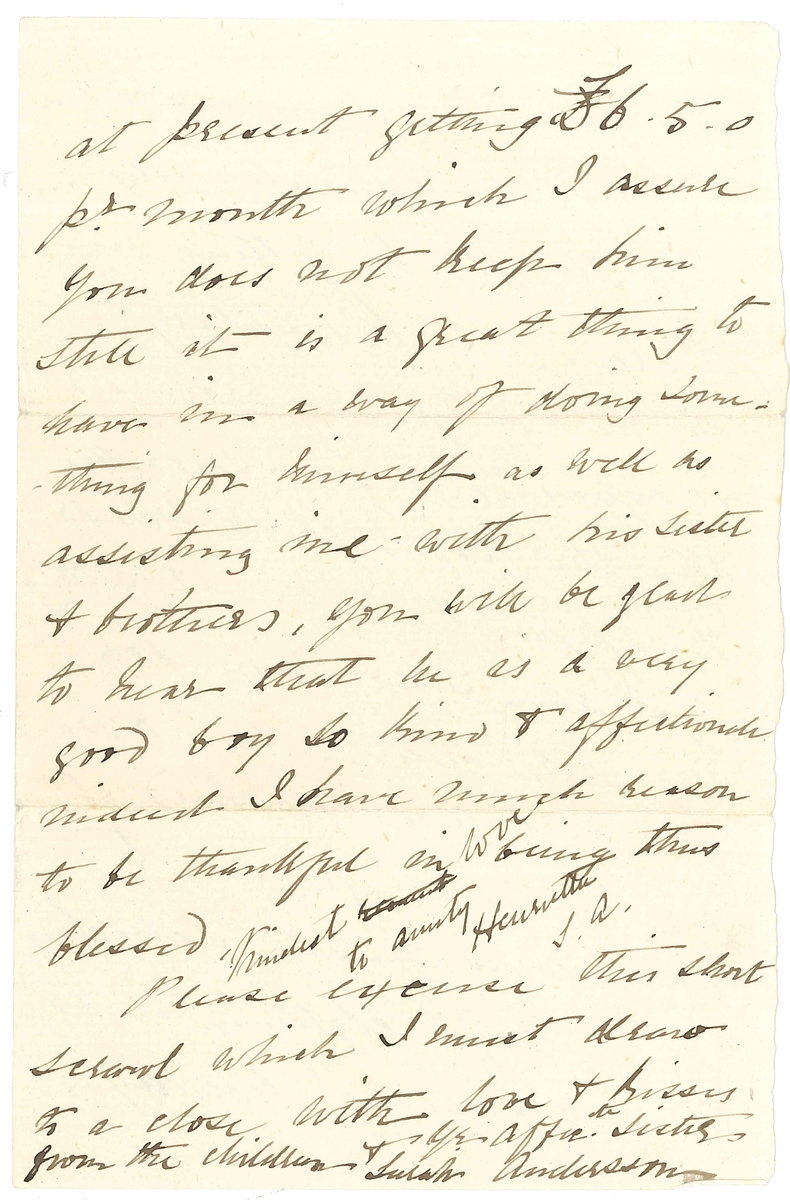 at present getting £6.5.0
pr. month which I assure
you does not keep him
still it is a great thing to
have in a way of doing some-
-thing for himself as well as
assisting me with his sister
& brothers, you will be glad
to hear that he is a very
good boy so kind & affectionate
indeed I have much reason
to be thankful in being thus
blessed.
Kindest love
to aunty Henrietta
S. A.
Please excuse this short
scrawl which I must draw
to a close with love & kisses
from the children & yr affec.te Sister
Sarah Andersson